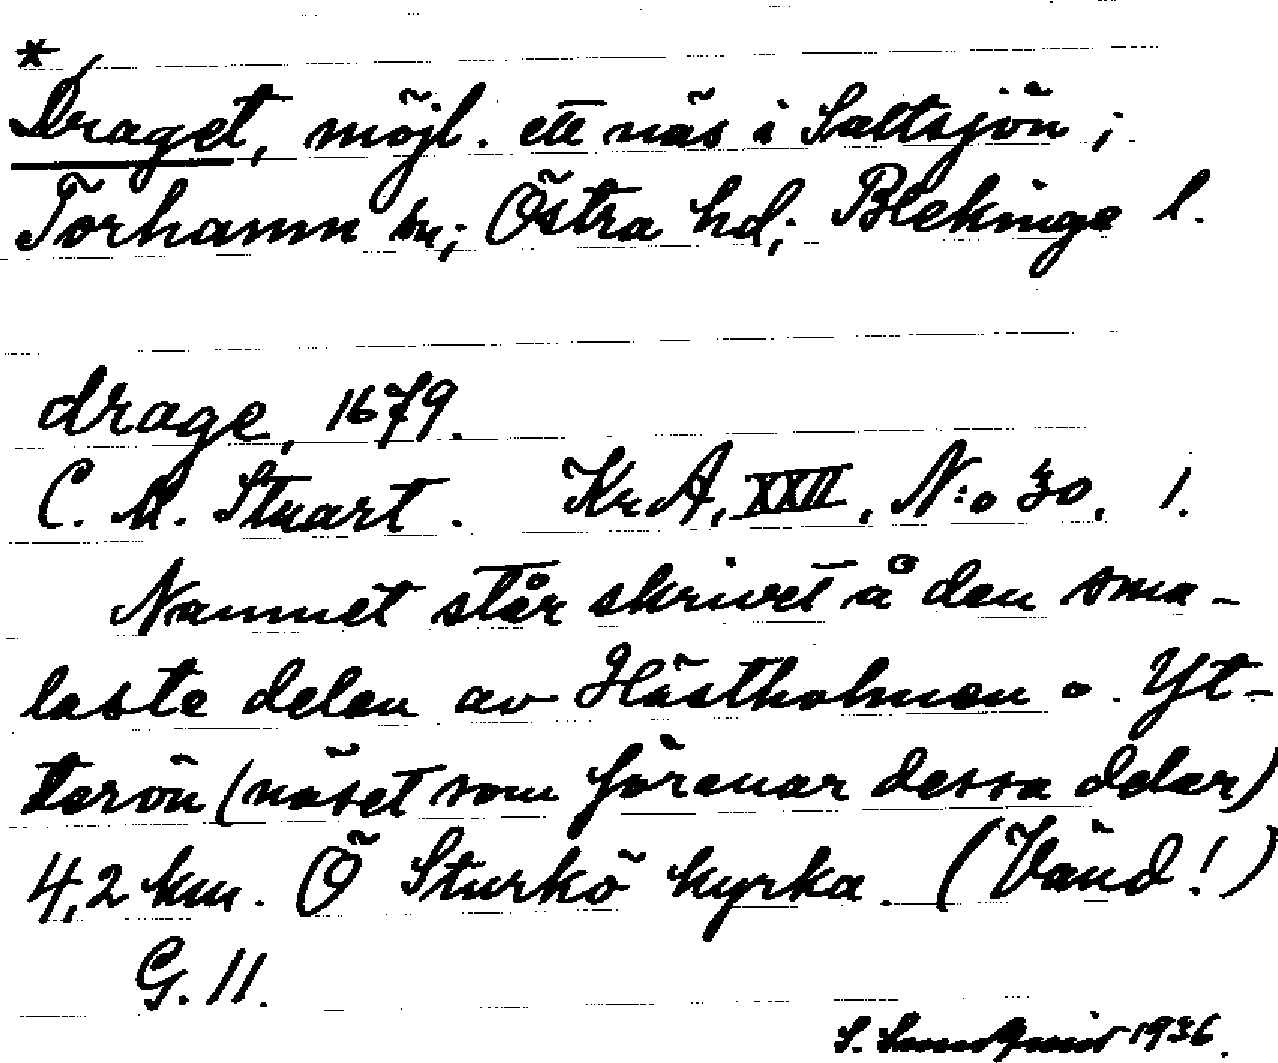 *
Draget, möjl. ett näs i Saltsjön;
Torhamn sn; Östra hd; Blekinge l.
drage, 1679.
C. M. Stuart. Kr A, XXII, N:o 30, 1.
Namnet står skrivet å den sma-
laste delen av Hästholmen o. Yt-
terön (näset som förenar dessa delar)
4,2 km. Ö Sturkö kyrka. (Vänd!)
G. 11.
S. 1936.